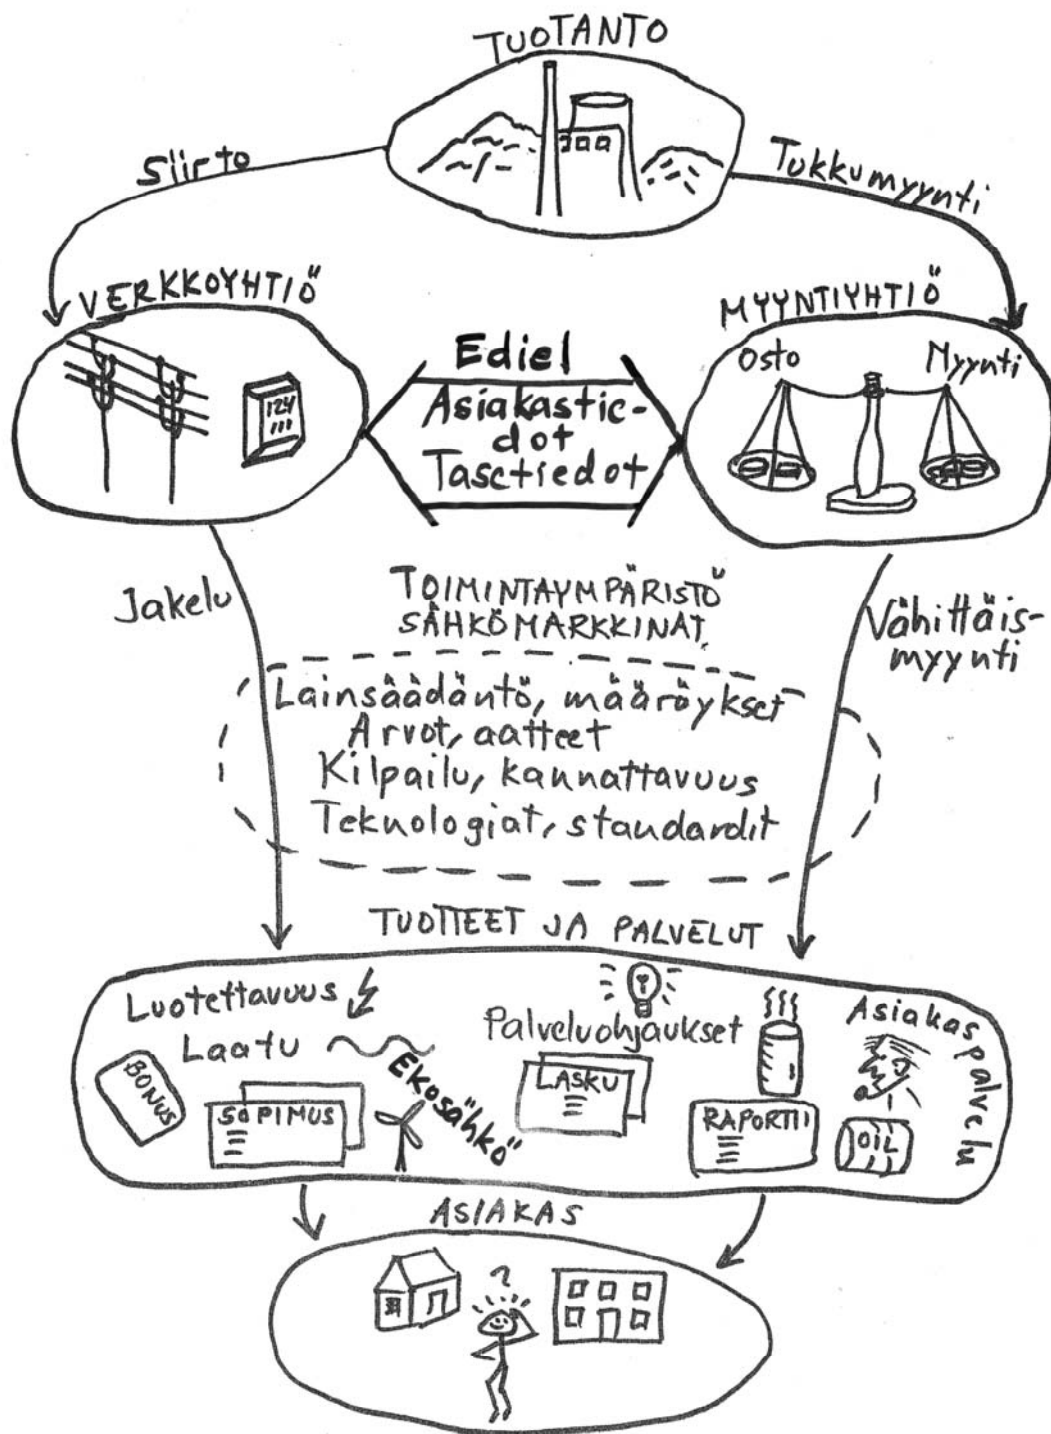 TUOTANTO
Siirto
Tukkumyynti
VERKKOYHTIÖ
MYYNTIYHTIÖ
124
111
Ediel
Asiakastie-
dot
Tasetiedot
Osto
Myynti
Jakelu
TOIMINTAYMPÄRISTÖ
SÄHKÖMARKKINAT
Vähittäis-
myynti
Lainsäädäntö, määräykset
Arvot, aatteet
Kilpailu, kannattavuus
Teknologiat, standardit
TUOTTEET JA PALVELUT
Luotettavuus
Laatu
BONUS
SOPIMUS
Ekosähkö
Palveluohjaukset
LASKU
RAPORTII
Asiakaspalvelu
OIL
ASIAKAS
?